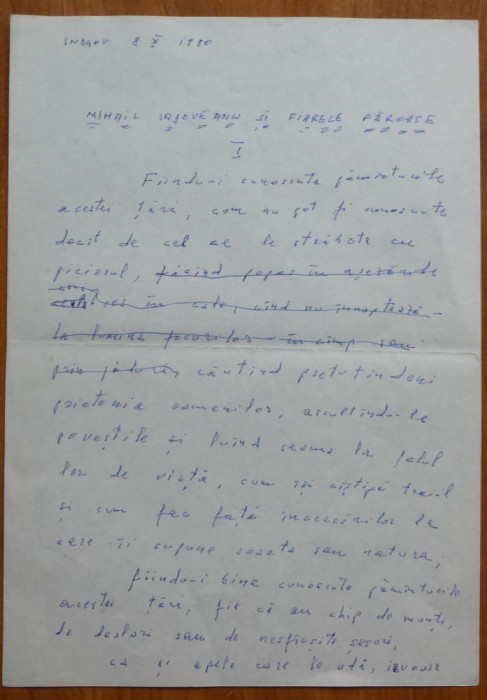 SNAGOV 8 X 1980
MIHAIL SADOVEANU ȘI FIARELE PĂROASE
I
Fiindu-i cunoscute pămînturile
acestei țări, cum nu pot fi cunoscute
decît de cel ce le străbate cu
piciorul, făcînd popas în așezările
ieș în cale, cînd nu înnoptează
la lumina focurilor în cîmp sau
prin păduri, căutînd pretutindeni
prietenia oamenilor, ascultîndu-le
poveștile și luînd seama la felul
lor de viață, cum își cîștigă traiul
și cum fac față încercărilor la
care îi supune soarta sau natura;
fiindu-i bine cunoscute pămînturile
acestei țări, fie că au chip de munți,
de dealuri sau de nesfîrșite șesuri,
ca și apele care le udă, izvoare